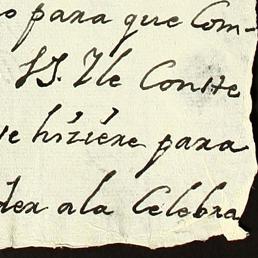 s para que Com-
SS. Ile Conste
ue hiziere para
der a la Celebra